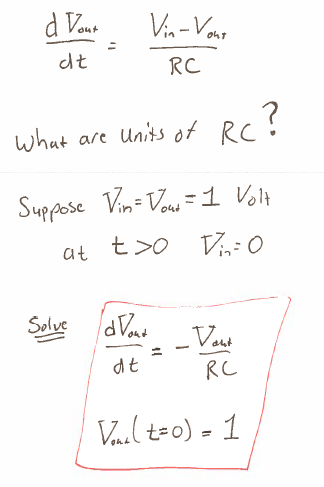 dVout/dt = (Vin-Vout)/RC
What are units of RC?
Suppose Vin=Vout=1 Volt
at t>0 Vin=0
Solve dVout/dt = -Vout/RC
Vout(t=0) = 1